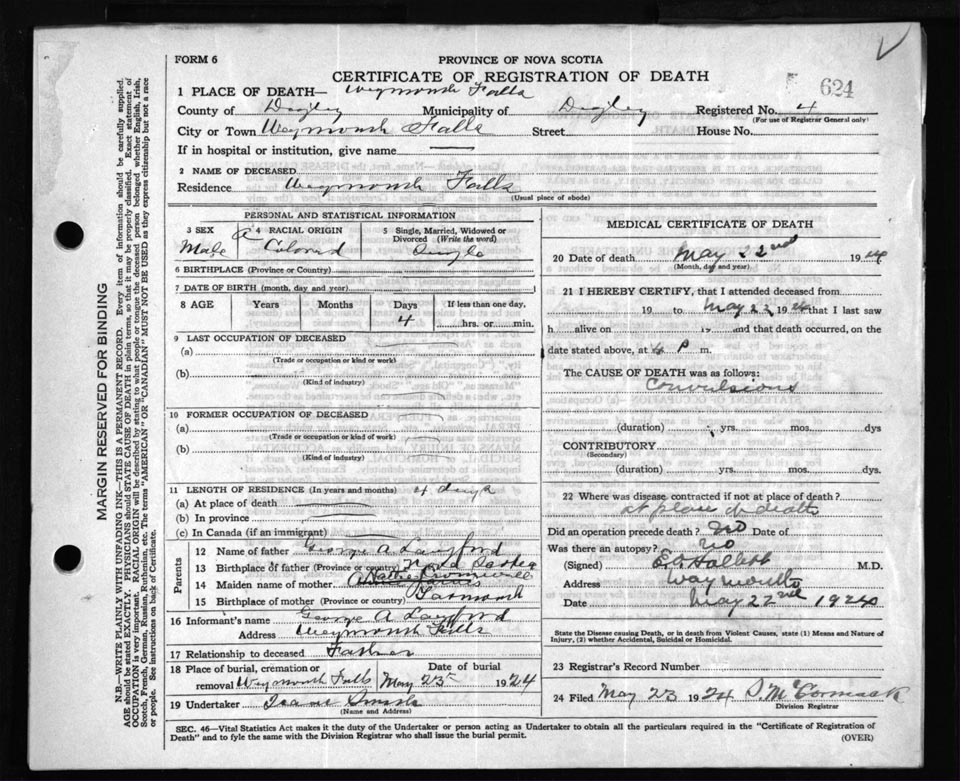 FORM 6
PROVINCE OF NOVA SCOTIA
624
CERTIFICATE OF REGISTRATION OF DEATH
1 PLACE OF DEATH— Weymouth Falls
County of Digby Municipality of Digby Registered No. 4
(For use of Registrar General only)
City or Town Weymouth Falls Street House No.
If in hospital or institution, give name —
2 NAME OF DECEASED
Residence Weymouth Falls
(Usual place of abode)
PERSONAL AND STATISTICAL INFORMATION
3 SEX
Male
4 RACIAL ORIGIN
Colored
5 Single, Married, Widowed or Divorced (Write the word)
Single
6 BIRTHPLACE (Province or Country)
7 DATE OF BIRTH (month, day and year)
8 AGE Years Months Days If less than one day,
4 hrs. or min.
9 LAST OCCUPATION OF DECEASED
(a)
(Trade or occupation or kind or work)
(b)
(Kind of industry)
10 FORMER OCCUPATION OF DECEASED
(a)
(Trade or occupation or kind of work)
(b)
(Kind of industry)
11 LENGTH OF RESIDENCE (In years and months) 4 days
(a) At place of death
(b) In province
(c) In Canada (if an immigrant)
Parents
12 Name of father George A Langford
13 Birthplace of father (Province or country) Nova Scotia
14 Maiden name of mother
15 Birthplace of mother (Province or country) Yarmouth
16 Informant's name George A Langford
Address Weymouth Falls
17 Relationship to deceased Father
18 Place of burial, cremation or removal Weymouth Falls
Date of burial
May 23 1924
19 Undertaker
(Name and Address)
MEDICAL CERTIFICATE OF DEATH
20 Date of death May 22nd 19
(Month, day and year)
21 I HEREBY CERTIFY, that I attended deceased from
19 to May 22 1924 that I last saw
h alive on 19 and that death occurred, on the
date stated above, at 6 P m.
The CAUSE OF DEATH was as follows:
Convulsions
(duration) yrs. mos. dys
CONTRIBUTORY
(Secondary)
(duration) yrs. mos. dys.
22 Where was disease contracted if not at place of death?
at place of death
Did an operation precede death? No Date of
Was there an autopsy? No
(Signed) M.D.
Address Weymouth
Date May 22nd 1924
State the Disease causing Death, or in death from Violent Causes, state (1) Means and Nature of
Injury, (2) whether Accidental, Suicidal or Homicidal.
23 Registrar's Record Number
24 Filed May 23 1924 D. McCormack
Division Registrar
SEC. 46—Vital Statistics Act makes it the duty of the Undertaker or person acting as Undertaker to obtain all the particulars required in the "Certificate of Registration of
Death" and to fyle the same with the Division Registrar who shall issue the burial permit.
(OVER)
MARGIN RESERVED FOR BINDING
N.B.—WRITE PLAINLY WITH UNFADING INK—THIS IS A PERMANENT RECORD. Every item of information should be carefully supplied.
AGE should be stated EXACTLY. PHYSICIANS should STATE CAUSE OF DEATH in plain terms, so that it may be properly classified. Exact statement of
OCCUPATION is very important. RACIAL ORIGIN will be described by stating to what people or tongue the deceased person belonged whether English, Irish,
Scotch, French, German, Russian, Ruthenian, etc. The terms "AMERICAN" OR "CANADIAN" MUST NOT BE USED as they express citizenship but not a race
or people. See instructions on back of Certificate.